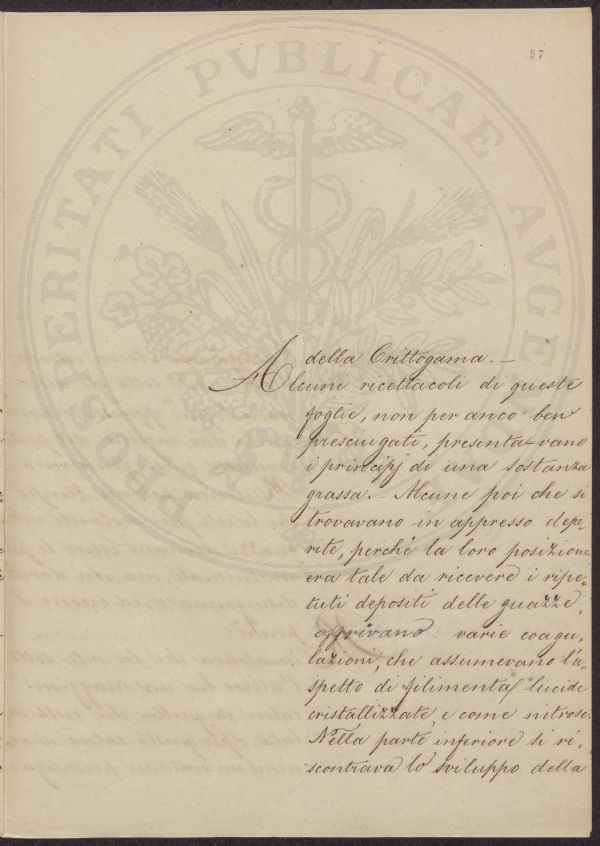 57
PROSPERITATI PVBLICAE AVGE
della Crittogama. –
Alcuni ricettacoli di queste
foglie, non per anco ben
presciugati, presenta=vano
i principj di una sostanza
grassa. – Alcune poi che si
trovavano in appresso depe-
rite, perchè la loro posizione
era tale da ricevere i ripe-
tuti depositi delle guazze,
offrivano varie coagu-
lazioni, che assumevano l'a-
spetto di filimenta lucide
cristallizzate, e come nitrose.
Nella parte inferiore si ri-
scontrava lo sviluppo della